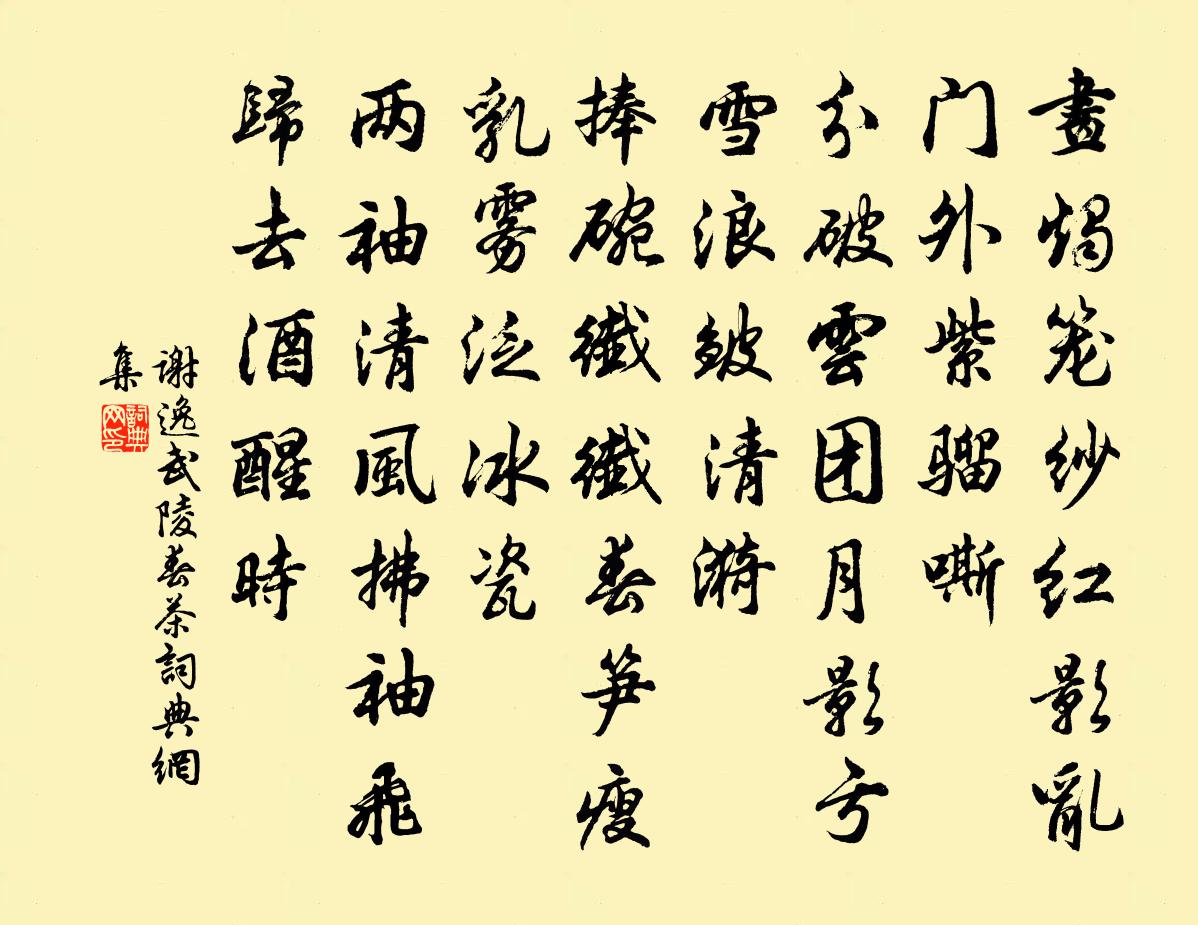 畫燭笼纱红影亂
门外紫骝嘶
分破雲团月影亏
雪浪皴清漪
捧碗纖纖春笋瘦
乳雾泛冰瓷
两袖清風拂袖飛
歸去酒醒時
謝逸武陵春茶詞典網
集
詞典网印